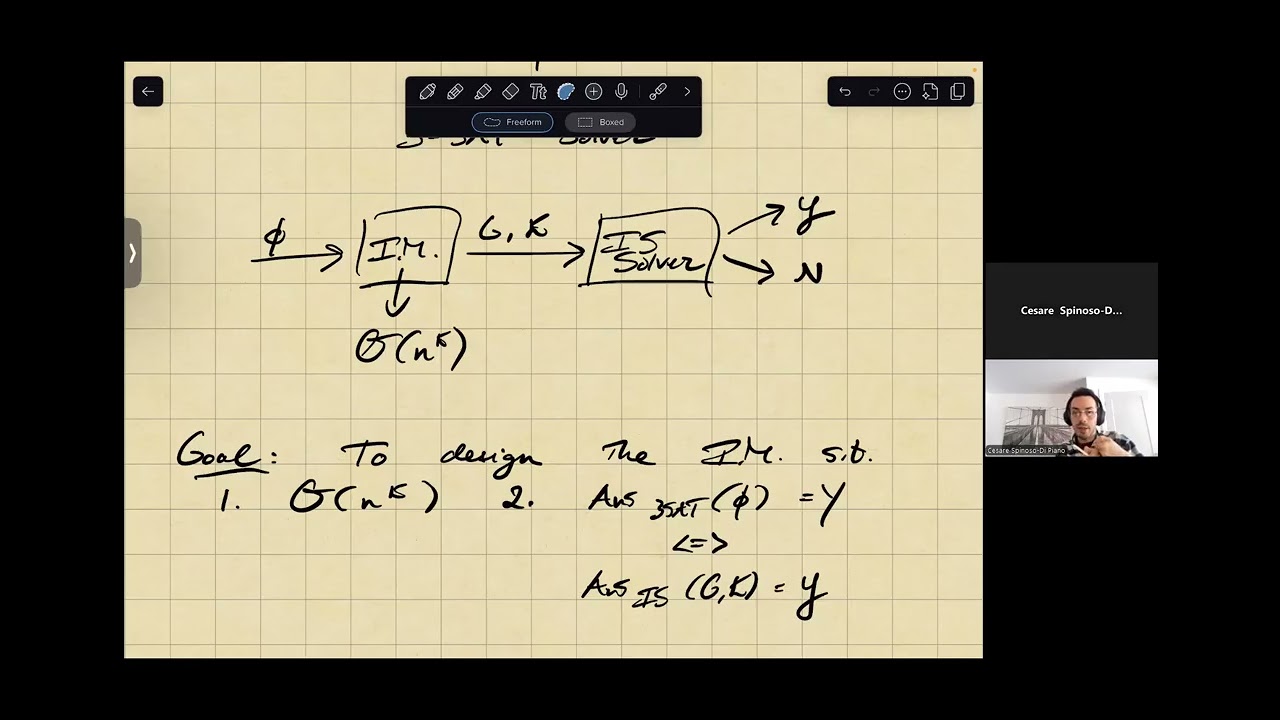 Tt
Freeform Boxed
3-SAT Solver
ϕ I.M. G, K IS Solver Y
N
O(n^K)
Goal: To design The I.M. s.t.
1. O(n^K) 2. Ans 3SAT (ϕ) = Y
<=>
Ans IS (G,K) = Y
Cesare Spinoso-D...
Cesare Spinoso-Di Piano